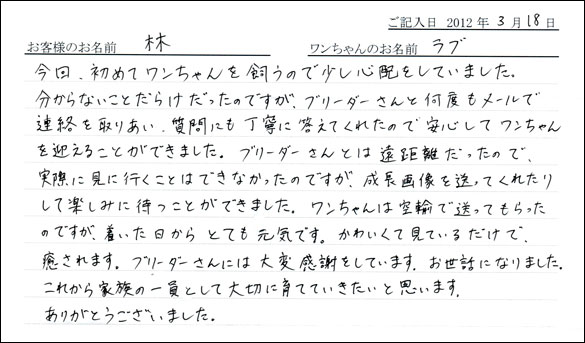 ご記入日 2012 年 3 月 18 日
お客様のお名前 林 ワンちゃんのお名前 ラブ
今回、初めてワンちゃんを飼うので少し心配をしていました。
分からないことだらけだったのですが、ブリーダーさんと何度もメールで
連絡を取りあい、質問にも丁寧に答えてくれたので安心してワンちゃん
を迎えることができました。ブリーダーさんとは遠距離だったので、
実際に見に行くことはできなかったのですが、成長画像を送ってくれたり
して楽しみに待つことができました。ワンちゃんは空輸で送ってもらった
のですが、着いた日からとても元気です。かわいくて見ているだけで、
癒されます。ブリーダーさんには大変感謝をしています。お世話になりました。
これから家族の一員として大切に育てていきたいと思います。
ありがとうございました。